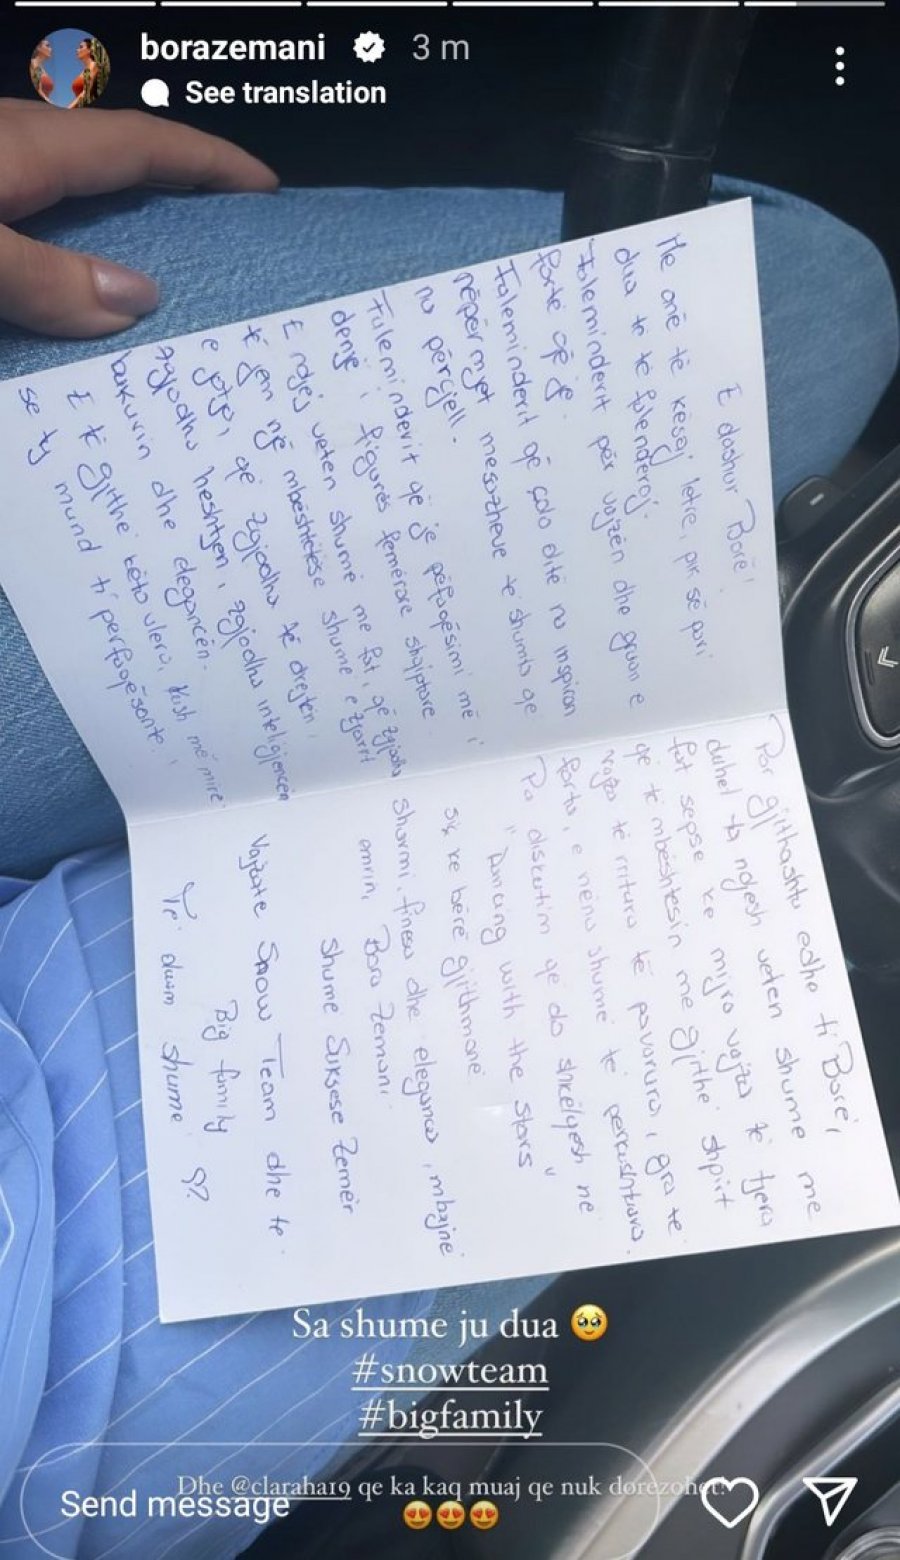 borazemani 3 m
See translation
E dashur Borë!
Me anë të kësaj letre, pik së pari
dua të të falenderoj.
Faleminderit për vajzën dhe gruan e
fortë që je.
Faleminderit që çdo ditë na inspiron
nëpërmjet mesazheve të shumta që
na përcjell.
Faleminderit që je përfaqësimi më i
denjë i figurës femërore shqiptare.
E ndjej veten shumë me fat, që zgjodha
të jem një mbështetëse shumë e zjarrt
e jotja, që zgjodhe të drejtën,
zgjodhe heshtjen, zgjodhe inteligjencën
bukurin dhe elegancën.
E të gjitha këto vlera, kush më mirë
se ty mund ti perfaqësonte.
Por gjithashtu edhe ti Borë,
duhet ta ndjesh veten shume me
fat sepse ke mijra vajza të tjera
që të mbështesin me gjithe shpirt
vajza të rritura të pavarura, gra të
forta, e nëna shumë të perkushtuara.
Pa diskutim që do shkëlqesh në
"Dancing with the stars"
siç ke bërë gjithmonë.
Sharmi, finesa dhe eleganca, mbajnë
emrin, Bora Zemani.
Shume Suksese Zemër
Vajzate Snow Team dhe te
Big family ♡
Të duam shume
Sa shume ju dua 🥹
#snowteam
#bigfamily
Dhe @claraha19 qe ka kaq muaj qe nuk dorezohet!
😍😍😍
Send message